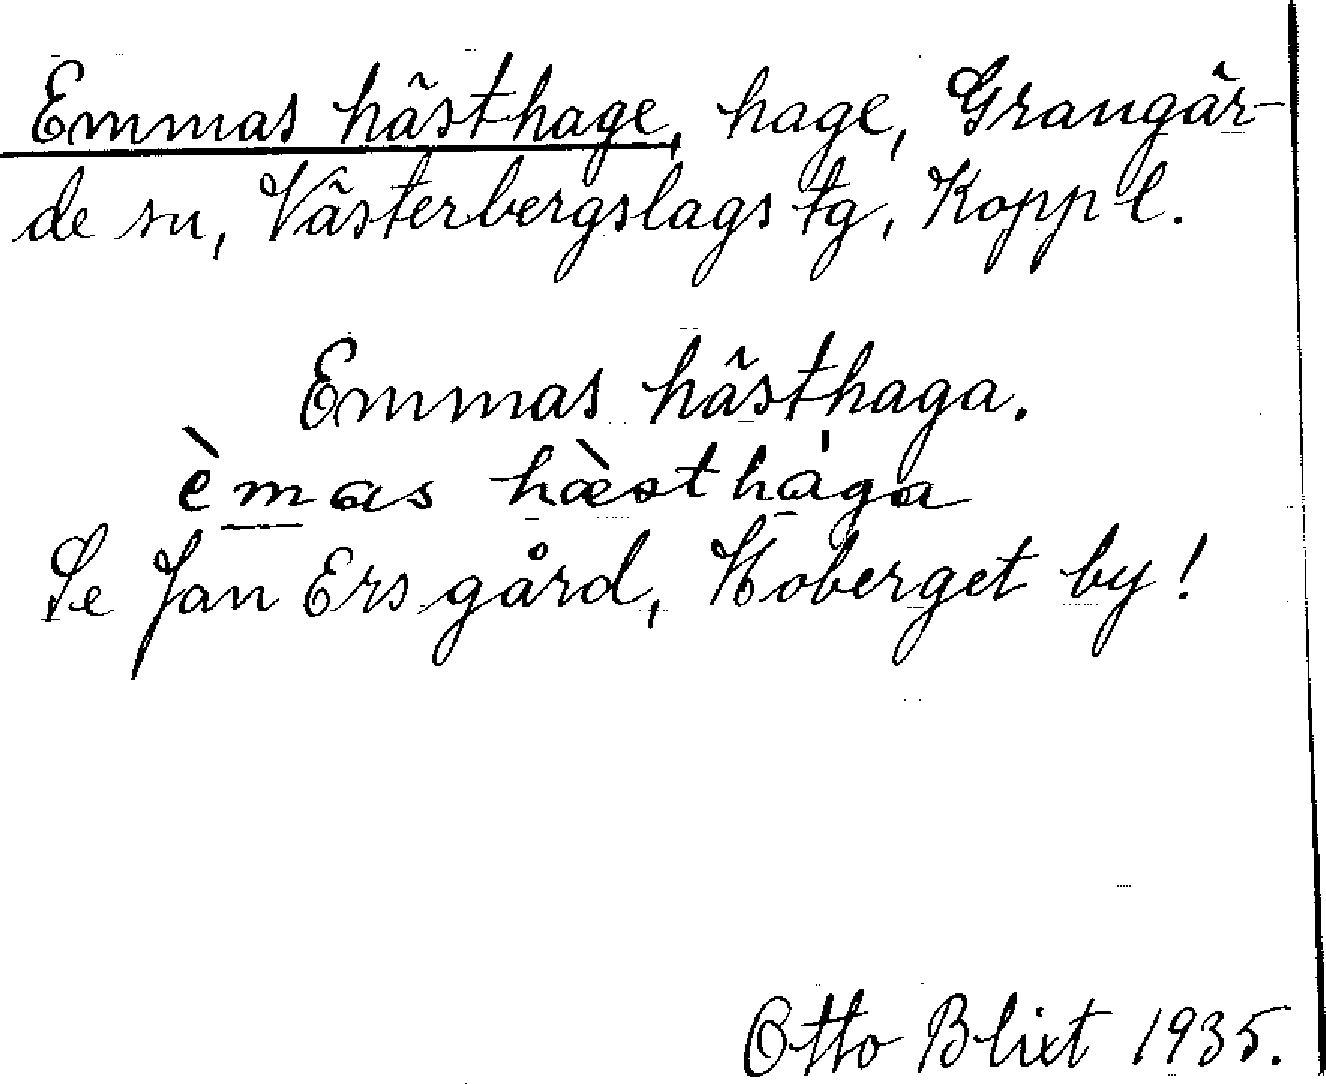 Emmas hästhage, hage, Grangär-
de sn, Västerbergslags tg, Kopp l.
Emmas hästhaga.
èmas hæ̀sthaˈga
Se Jan Ers gård, Hoberget by!
Otto Blixt 1935.